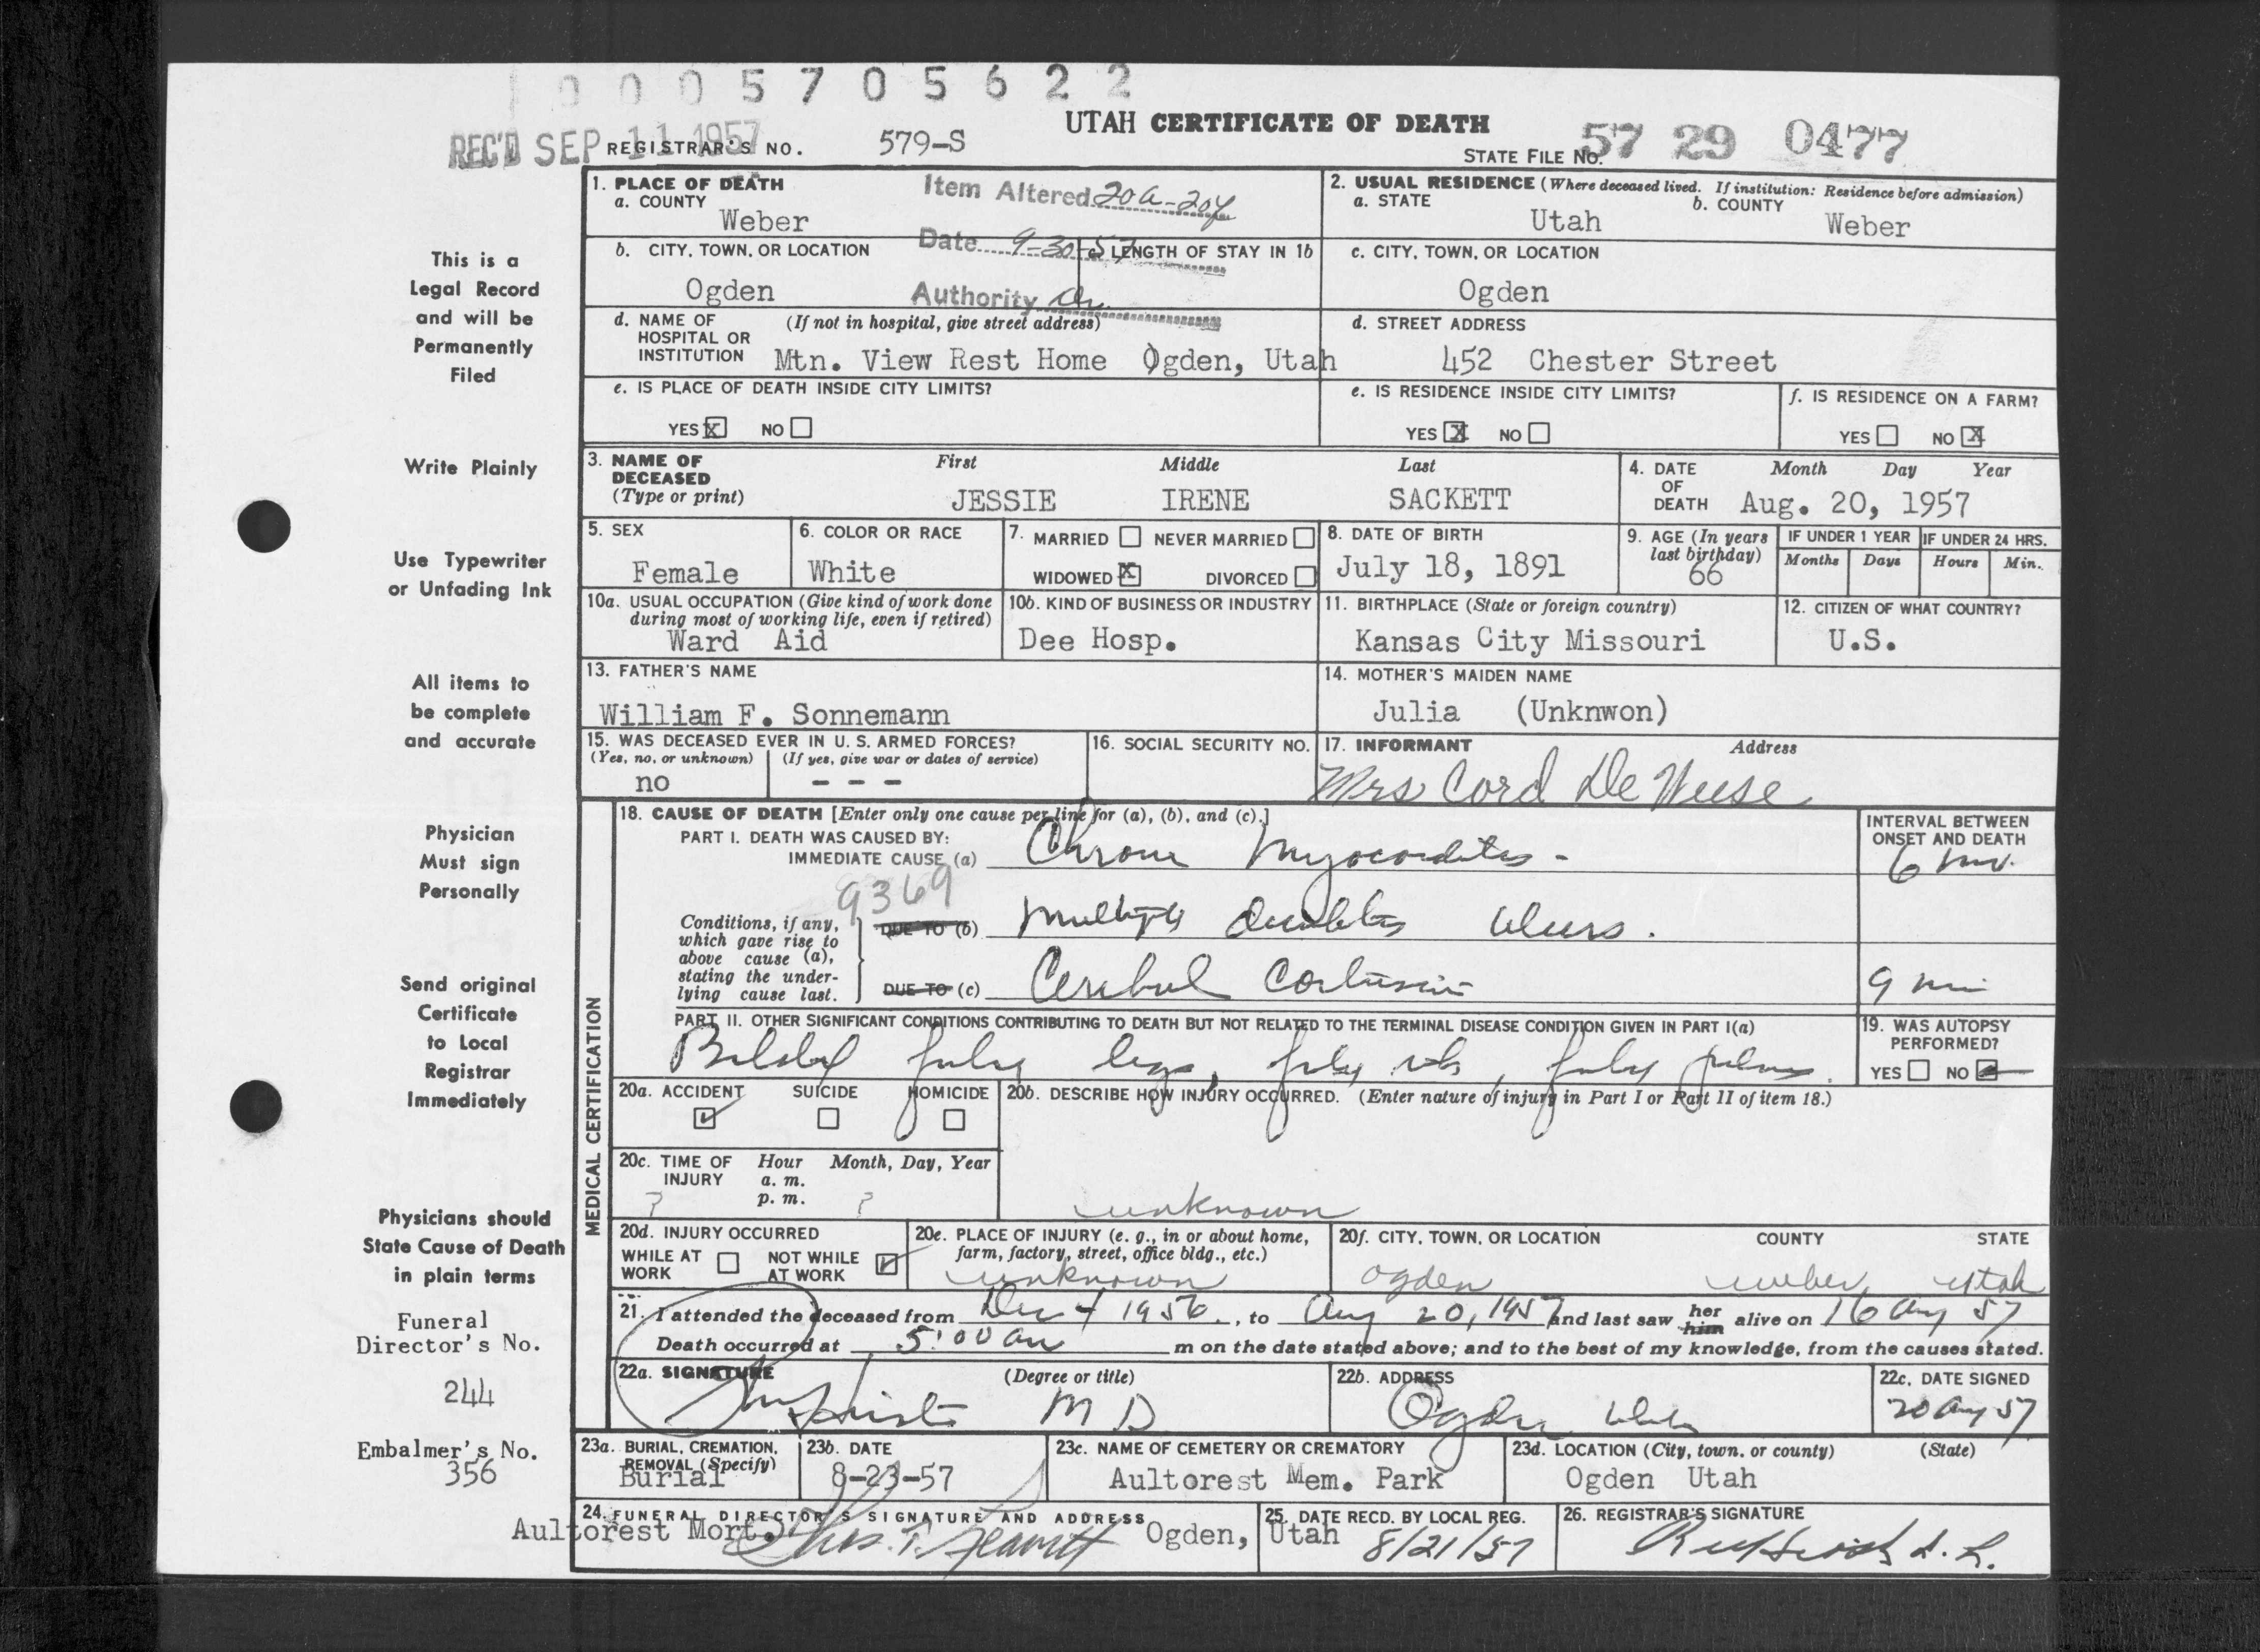 0005705622
UTAH CERTIFICATE OF DEATH
REC'D SEP 11 1957 REGISTRAR'S NO. 579-S
STATE FILE NO. 57 29 0477
1. PLACE OF DEATH
a. COUNTY
Weber
Item Altered 20a-20f
2. USUAL RESIDENCE (Where deceased lived. If institution: Residence before admission)
a. STATE
Utah
b. COUNTY
Weber
b. CITY, TOWN, OR LOCATION
Ogden
Date 9-30-57
c. LENGTH OF STAY IN 1b
Authority
c. CITY, TOWN, OR LOCATION
Ogden
d. NAME OF HOSPITAL OR INSTITUTION
(If not in hospital, give street address)
Mtn. View Rest Home Ogden, Utah
d. STREET ADDRESS
452 Chester Street
e. IS PLACE OF DEATH INSIDE CITY LIMITS?
YES X NO
e. IS RESIDENCE INSIDE CITY LIMITS?
YES X NO
f. IS RESIDENCE ON A FARM?
YES NO X
This is a
Legal Record
and will be
Permanently
Filed
Write Plainly
3. NAME OF DECEASED
(Type or print)
First Middle Last
JESSIE IRENE SACKETT
4. DATE OF DEATH
Month Day Year
Aug. 20, 1957
Use Typewriter
or Unfading Ink
5. SEX
Female
6. COLOR OR RACE
White
7. MARRIED NEVER MARRIED
WIDOWED X DIVORCED
8. DATE OF BIRTH
July 18, 1891
9. AGE (In years last birthday)
66
IF UNDER 1 YEAR
Months Days
IF UNDER 24 HRS.
Hours Min.
10a. USUAL OCCUPATION (Give kind of work done
during most of working life, even if retired)
Ward Aid
10b. KIND OF BUSINESS OR INDUSTRY
Dee Hosp.
11. BIRTHPLACE (State or foreign country)
Kansas City Missouri
12. CITIZEN OF WHAT COUNTRY?
U.S.
All items to
be complete
and accurate
13. FATHER'S NAME
William F. Sonnemann
14. MOTHER'S MAIDEN NAME
Julia (Unknwon)
15. WAS DECEASED EVER IN U. S. ARMED FORCES?
(Yes, no, or unknown) (If yes, give war or dates of service)
no - - -
16. SOCIAL SECURITY NO.
17. INFORMANT Address
Mrs Cord De Weese
Physician
Must sign
Personally
MEDICAL CERTIFICATION
18. CAUSE OF DEATH [Enter only one cause per line for (a), (b), and (c).]
PART I. DEATH WAS CAUSED BY:
IMMEDIATE CAUSE (a) Chronic Myocarditis -
INTERVAL BETWEEN
ONSET AND DEATH
9369
Conditions, if any,
which gave rise to
above cause (a),
stating the under-
lying cause last.
DUE TO (b) Multiple decubitus ulcers.
DUE TO (c) Cerebral Contusion
Send original
Certificate
to Local
Registrar
Immediately
PART II. OTHER SIGNIFICANT CONDITIONS CONTRIBUTING TO DEATH BUT NOT RELATED TO THE TERMINAL DISEASE CONDITION GIVEN IN PART I(a)
19. WAS AUTOPSY
PERFORMED?
YES NO
20a. ACCIDENT SUICIDE HOMICIDE
20b. DESCRIBE HOW INJURY OCCURRED. (Enter nature of injury in Part I or Part II of item 18.)
unknown
20c. TIME OF INJURY
Hour Month, Day, Year
a. m.
p. m.
? ?
Physicians should
State Cause of Death
in plain terms
20d. INJURY OCCURRED
WHILE AT WORK NOT WHILE AT WORK
20e. PLACE OF INJURY (e. g., in or about home,
farm, factory, street, office bldg., etc.)
unknown
20f. CITY, TOWN, OR LOCATION COUNTY STATE
Ogden weber Utah
21. I attended the deceased from Dec 4 1956, to Aug 20, 1957 and last saw her him alive on 16 Aug 57
Death occurred at 5:00 am m on the date stated above; and to the best of my knowledge, from the causes stated.
Funeral
Director's No.
244
22a. SIGNATURE (Degree or title)
M D
22b. ADDRESS
Ogden Utah
22c. DATE SIGNED
20 Aug 57
Embalmer's No.
356
23a. BURIAL, CREMATION,
REMOVAL (Specify)
Burial
23b. DATE
8-23-57
23c. NAME OF CEMETERY OR CREMATORY
Aultorest Mem. Park
23d. LOCATION (City, town, or county) (State)
Ogden Utah
24. FUNERAL DIRECTOR'S SIGNATURE AND ADDRESS
Aultorest Mort. Ogden, Utah
25. DATE RECD. BY LOCAL REG.
8/21/57
26. REGISTRAR'S SIGNATURE